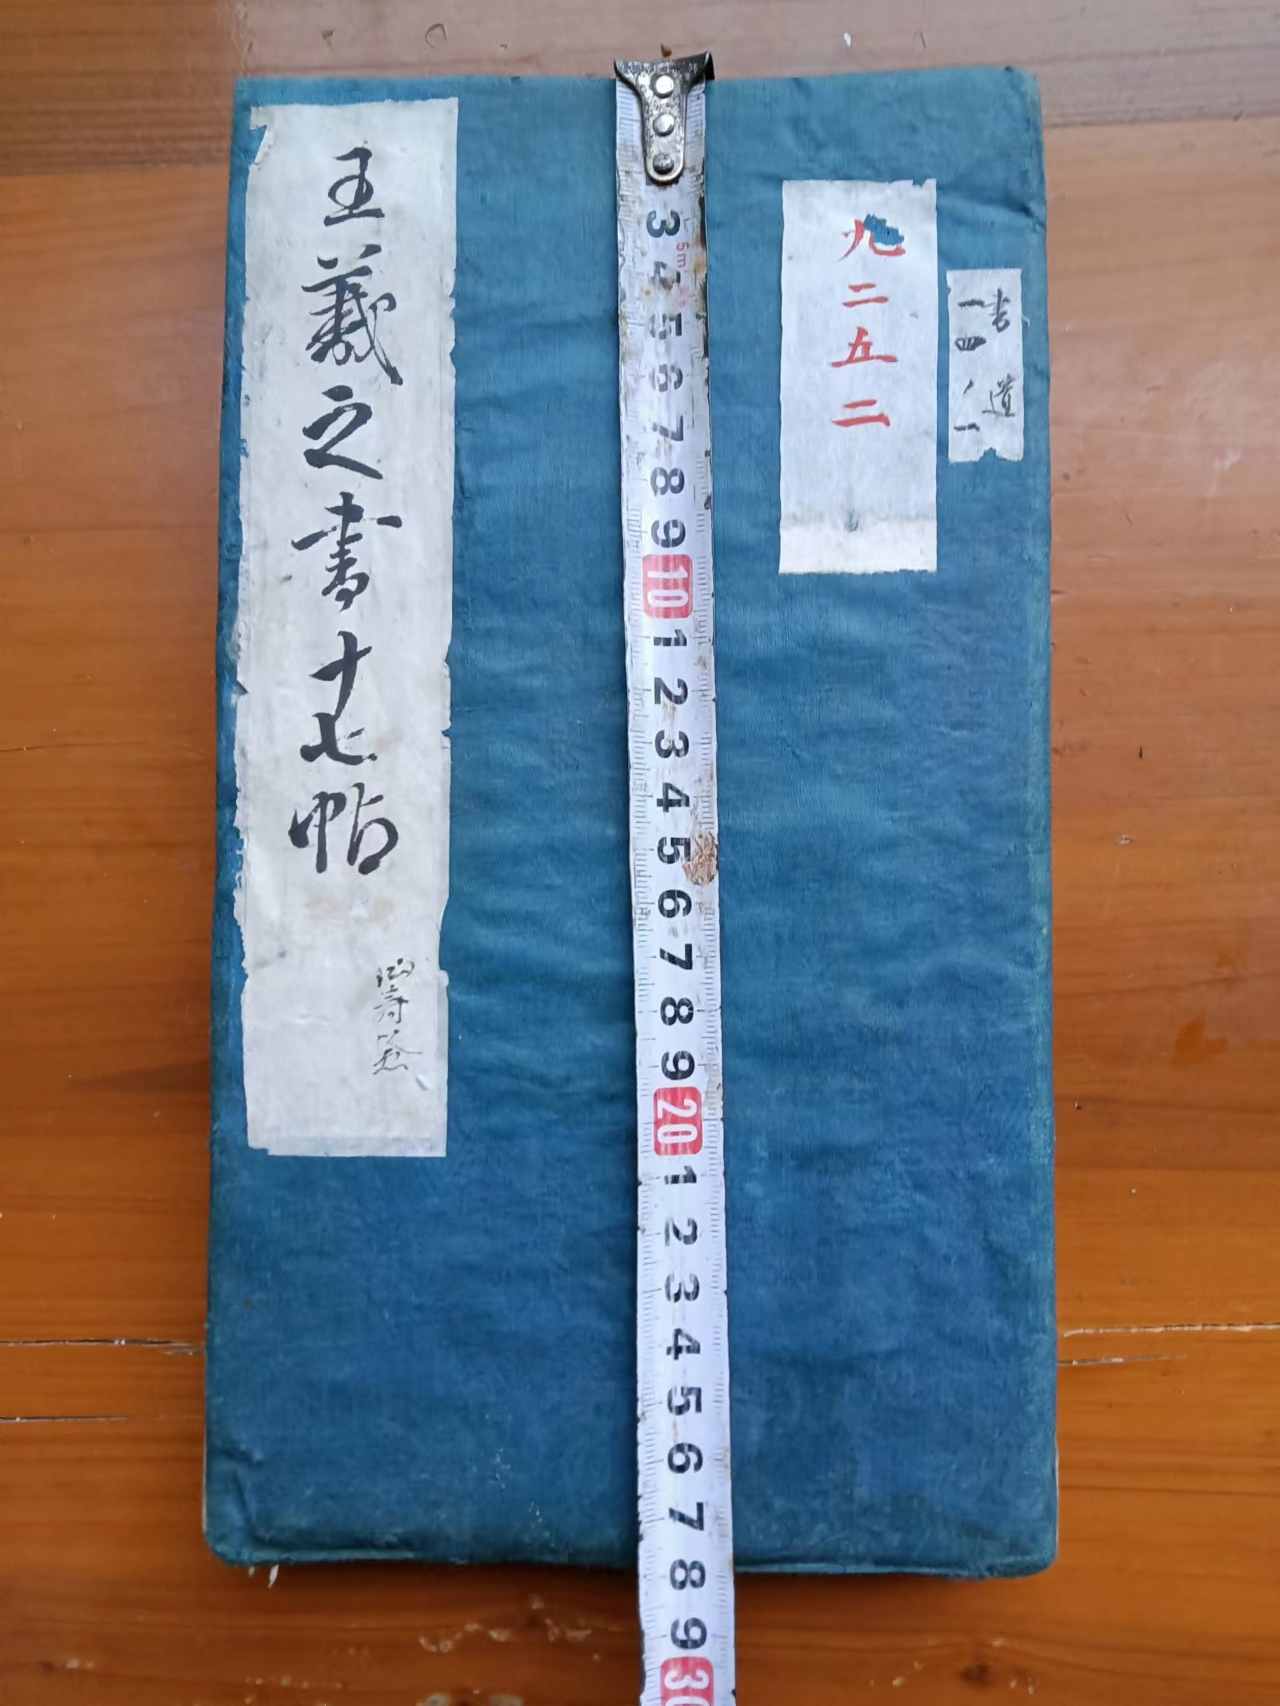 王羲之書十七帖
九二五二
書道
一四ノ一
3
5m
4
5
6
7
8
9
10
1
2
3
4
5
6
7
8
9
20
1
2
3
4
5
6
7
8
9
30